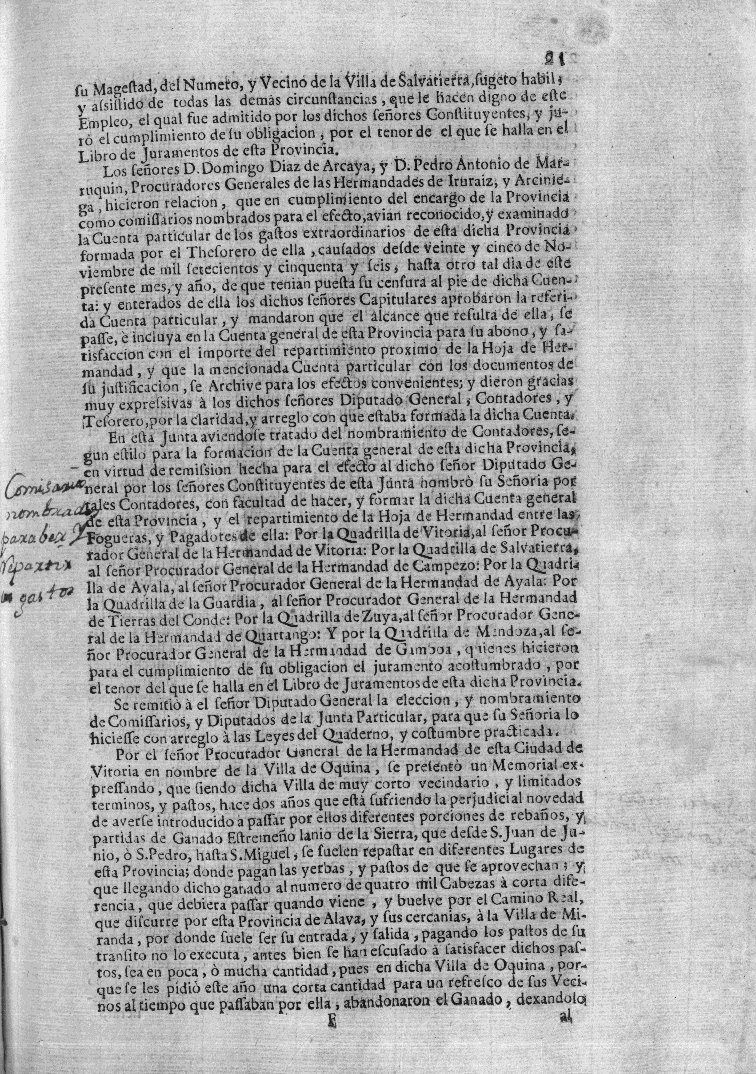 21
su Magestad, del Numero, y Vecino de la Villa de Salvatierra, sugeto habil,
y assistido de todas las demás circunstancias, que le hacen digno de este
Empleo, el qual fue admitido por los dichos señores Constituyentes, y ju-
ró el cumplimiento de su obligacion, por el tenor de el que se halla en el
Libro de Juramentos de esta Provincia.
Los señores D. Domingo Diaz de Arcaya, y D. Pedro Antonio de Mar-
ruquin, Procuradores Generales de las Hermandades de Iruraiz, y Arcinie-
ga, hicieron relacion, que en cumplimiento del encargo de la Provincia
como comissarios nombrados para el efecto, avian reconocido, y examinado
la Cuenta particular de los gastos extraordinarios de esta dicha Provincia
formada por el Thesorero de ella, causados desde veinte y cinco de No-
viembre de mil setecientos y cinquenta y seis, hasta otro tal dia de este
presente mes, y año, de que tenian puesta su censura al pie de dicha Cuen-
ta: y enterados de ella los dichos señores Capitulares aprobaron la referi-
da Cuenta particular, y mandaron que el alcance que resulta de ella, se
passe, è incluya en la Cuenta general de esta Provincia para su abono, y sa-
tisfaccion con el importe del repartimiento proximo de la Hoja de Her-
mandad, y que la mencionada Cuenta particular con los documentos de
su justificacion, se Archive para los efectos convenientes; y dieron gracias
muy expressivas à los dichos señores Diputado General, Contadores, y
Tesorero, por la claridad, y arreglo con que estaba formada la dicha Cuenta.
En esta Junta aviendose tratado del nombramiento de Contadores, se-
gun estilo para la formacion de la Cuenta general de esta dicha Provincia,
en virtud de remission hecha para el efecto al dicho señor Diputado Ge-
neral por los señores Constituyentes de esta Junta nombrò su Señoria por
tales Contadores, con facultad de hacer, y formar la dicha Cuenta general
de esta Provincia, y el repartimiento de la Hoja de Hermandad entre las
Fogueras, y Pagadores de ella: Por la Quadrilla de Vitoria, al señor Procu-
rador General de la Hermandad de Vitoria: Por la Quadrilla de Salvatierra,
al señor Procurador General de la Hermandad de Campezo: Por la Quadri-
lla de Ayala, al señor Procurador General de la Hermandad de Ayala: Por
la Quadrilla de la Guardia, al señor Procurador General de la Hermandad
de Tierras del Conde: Por la Quadrilla de Zuya, al señor Procurador Gene-
ral de la Hermandad de Quartango: Y por la Quadrilla de Mendoza, al se-
ñor Procurador General de la Hermandad de Gamboa, quienes hicieron
para el cumplimiento de su obligacion el juramento acostumbrado, por
el tenor del que se halla en el Libro de Juramentos de esta dicha Provincia.
Comisarios
nombrados
para ber y
repartir
gastos
Se remitiò à el señor Diputado General la eleccion, y nombramiento
de Comissarios, y Diputados de la Junta Particular, para que su Señoria lo
hiciesse con arreglo à las Leyes del Quaderno, y costumbre practicada.
Por el señor Procurador General de la Hermandad de esta Ciudad de
Vitoria en nombre de la Villa de Oquina, se presentò un Memorial ex-
pressando, que siendo dicha Villa de muy corto vecindario, y limitados
terminos, y pastos, hace dos años que està sufriendo la perjudicial novedad
de averse introducido à passar por ellos diferentes porciones de rebaños, y
partidas de Ganado Estremeño lanio de la Sierra, que desde S. Juan de Ju-
nio, ò S. Pedro, hasta S. Miguel, se suelen repastar en diferentes Lugares de
esta Provincia; donde pagan las yerbas, y pastos de que se aprovechan; y
que llegando dicho ganado al numero de quatro mil Cabezas à corta dife-
rencia, que debiera passar quando viene, y buelve por el Camino Real,
que discurre por esta Provincia de Alava, y sus cercanias, à la Villa de Mi-
randa, por donde suele ser su entrada, y salida, pagando los pastos de su
transito no lo executa, antes bien se han escusado à satisfacer dichos pas-
tos, sea en poca, ò mucha cantidad, pues en dicha Villa de Oquina, por-
que se les pidiò este año una corta cantidad para un refresco de sus Veci-
nos al tiempo que passaban por ella, abandonaron el Ganado, dexandolo
F
al